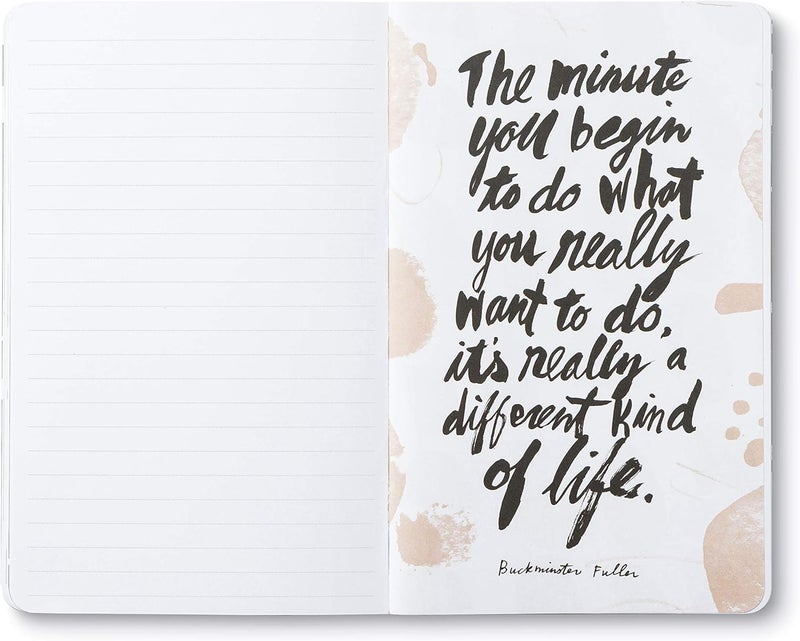 The minute
you begin
to do what
you really
want to do,
it's really a
different kind
of life.
Buckminster Fuller